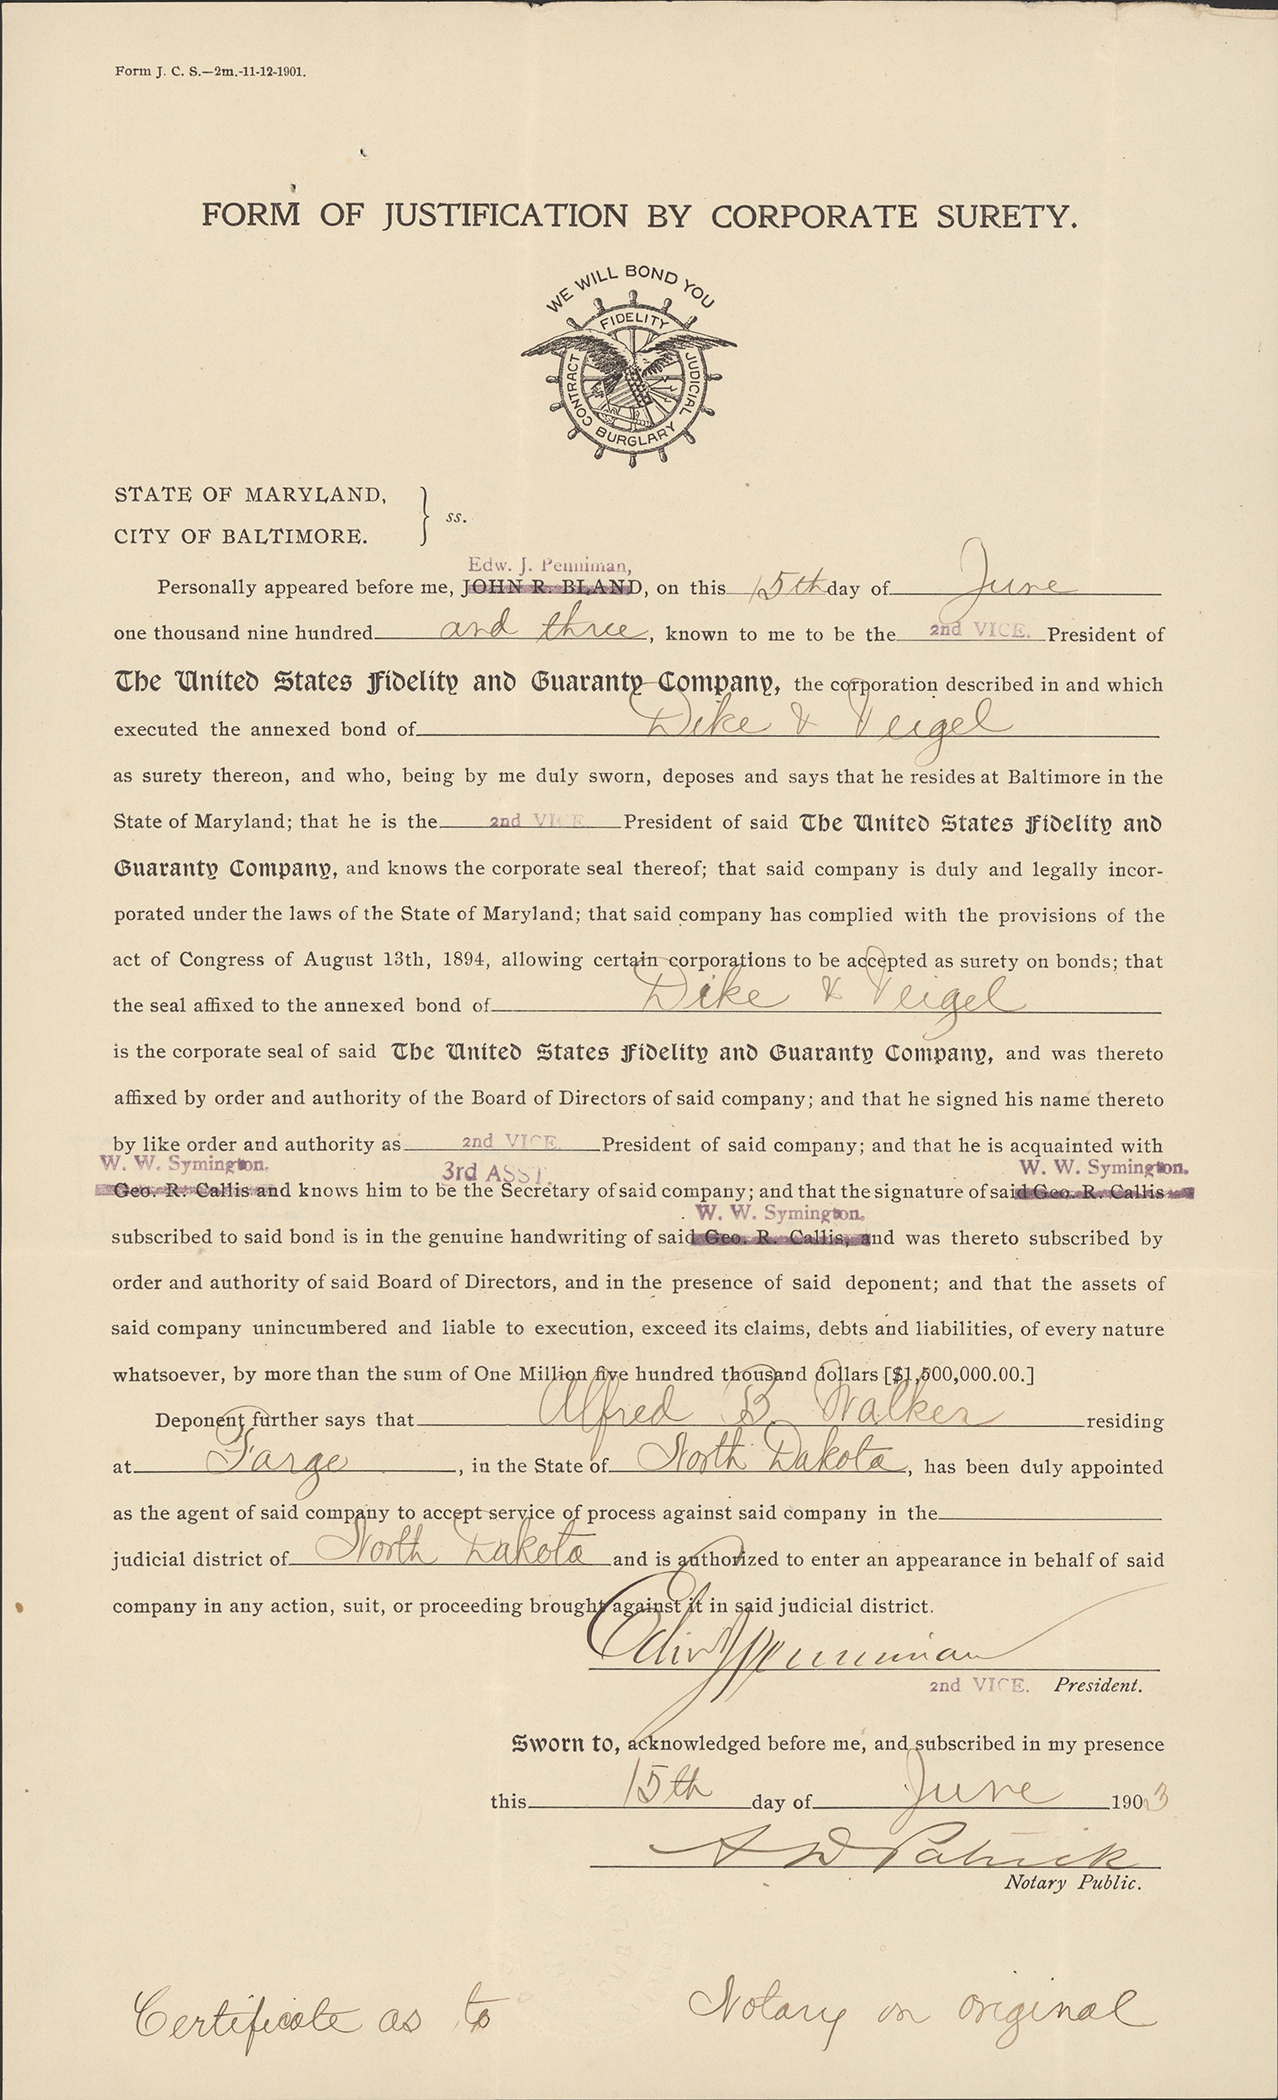 Form J. C. S.—2m.-11-12-1901.
FORM OF JUSTIFICATION BY CORPORATE SURETY.
WE WILL BOND YOU
FIDELITY
CONTRACT
JUDICIAL
BURGLARY
STATE OF MARYLAND,
CITY OF BALTIMORE.
} ss.
Edw. J. Penniman,
Personally appeared before me, JOHN R. BLAND, on this 15th day of June
one thousand nine hundred and three, known to me to be the 2nd VICE. President of
The United States Fidelity and Guaranty Company, the corporation described in and which
executed the annexed bond of Dike & Veigel
as surety thereon, and who, being by me duly sworn, deposes and says that he resides at Baltimore in the
State of Maryland; that he is the 2nd VICE. President of said The United States Fidelity and
Guaranty Company, and knows the corporate seal thereof; that said company is duly and legally incor-
porated under the laws of the State of Maryland; that said company has complied with the provisions of the
act of Congress of August 13th, 1894, allowing certain corporations to be accepted as surety on bonds; that
the seal affixed to the annexed bond of Dike & Veigel
is the corporate seal of said The United States Fidelity and Guaranty Company, and was thereto
affixed by order and authority of the Board of Directors of said company; and that he signed his name thereto
by like order and authority as 2nd VICE. President of said company; and that he is acquainted with
W. W. Symington. 3rd ASST. W. W. Symington.
Geo. R. Callis and knows him to be the Secretary of said company; and that the signature of said Geo. R. Callis
W. W. Symington.
subscribed to said bond is in the genuine handwriting of said Geo. R. Callis, and was thereto subscribed by
order and authority of said Board of Directors, and in the presence of said deponent; and that the assets of
said company unincumbered and liable to execution, exceed its claims, debts and liabilities, of every nature
whatsoever, by more than the sum of One Million five hundred thousand dollars [$1,500,000.00.]
Deponent further says that Alfred B. Walker residing
at Fargo, in the State of North Dakota, has been duly appointed
as the agent of said company to accept service of process against said company in the
judicial district of North Dakota and is authorized to enter an appearance in behalf of said
company in any action, suit, or proceeding brought against it in said judicial district.
Edw J Penniman
2nd VICE. President.
Sworn to, acknowledged before me, and subscribed in my presence
this 15th day of June 1903
A D Patrick
Notary Public.
Certificate as to Notary on original